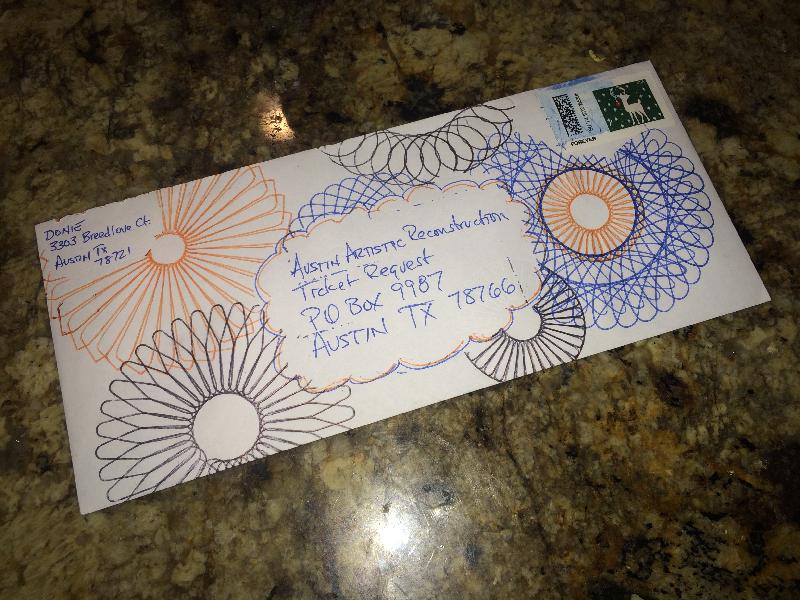 DONIE
3303 Breedlove Ct.
AUSTIN TX
78721
FOREVER
AUSTIN ARTISTIC Reconstruction
Ticket Request
PO BOX 9987
AUSTIN TX 78766